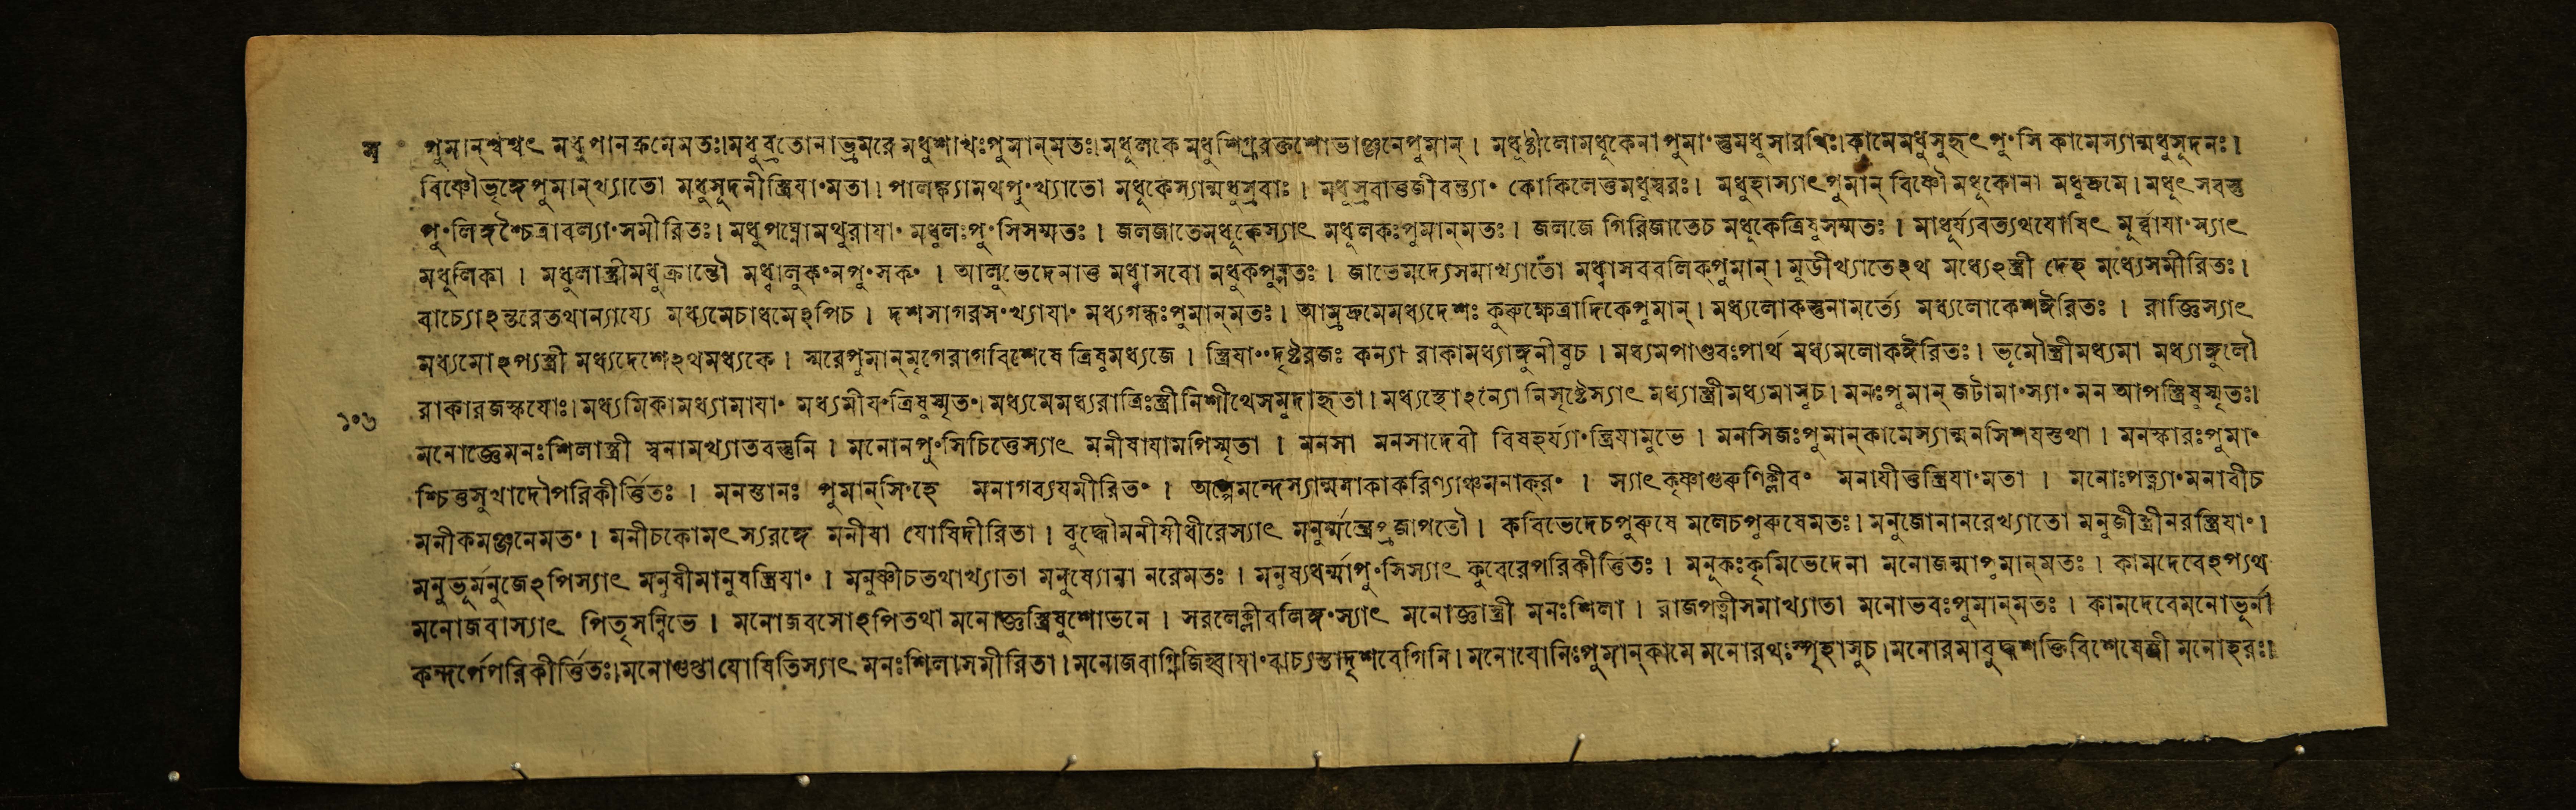 ম পুমান্‌শ্বশ্বৎ মধুপানক্রমেমতঃ।মধুব্রতোনাভ্রমরে মধুশাখঃপুমান্‌মতঃ।মধূলকে মধুশিগ্রুরক্তশোভাঞ্জনেপুমান্‌। মধুষ্ঠীলোমধূকেনা পুমাংস্তুমধুসারথিঃ।কামেমধুসুহৃৎ পুংসি কামেস্যান্মধুসূদনঃ।
বিষ্ণৌভৃঙ্গেপুমান্‌খ্যাতো মধুসূদনীস্ত্রিযাংমতা। পালঙ্ক্যামথপুংখ্যাতো মধূকেস্যান্মধুস্রবাঃ। মধুস্রবাতুজীবন্ত্যাং কোকিলেতুমধুস্বরঃ। মধুহাস্যাৎপুমান্‌ বিষ্ণৌমধূকোনা মধুদ্রুমে। মধূৎসবস্তু
পুংলিঙ্গশ্চৈত্রাবল্যাংসমীরিতঃ। মধুপঘ্নোমথুরাযাং মধূলঃপুংসিসম্মতঃ। জলজাতেমধূকেস্যাৎ মধূলকঃপুমান্‌মতঃ। জলজে গিরিজাতেচ মধূকেত্রিষুসম্মতঃ। মাধুর্য্যবত্যথযোষিৎ মূর্ব্বাযাংস্যাৎ
মধূলিকা। মধুলাস্ত্রীমধুক্রান্তৌ মধ্বালুকংনপুংসকং। আলুভেদেনাতু মধ্বাসবো মধুকপুষ্পতঃ। জাতেমদ্যেসমাখ্যাতো মধ্বাসববলিকপুমান্‌। মুডীখ্যাতেঽথ মধ্যেঽস্ত্রী দেহ মধ্যেসমীরিতঃ।
বাচ্যোঽন্তরেতথান্যায্যে মধ্যমেচাধমেঽপিচ। দশসাগরসংখ্যাযাং মধ্যগন্ধঃপুমান্‌মতঃ। আম্রদ্রুমেমধ্যদেশঃ কুরুক্ষেত্রাদিকেপুমান্‌। মধ্যলোকস্তুনামর্ত্যে মধ্যলোকেশঈরিতঃ। রাজ্ঞিস্যাৎ
মধ্যমোঽপ্যস্ত্রী মধ্যদেশেঽথমধ্যকে। স্মরেপুমান্‌মৃগেরাগবিশেষে ত্রিষুমধ্যজে। স্ত্রিযাংদৃষ্টরজঃ কন্যা রাকামধ্যাঙ্গুলীষুচ। মধ্যমপাণ্ডবঃপার্থ মধ্যমলোকঈরিতঃ। ভূমৌস্ত্রীমধ্যমা মধ্যাঙ্গুলৌ
রাকারজস্কযোঃ।মধ্যমিকামধ্যামাযাং মধ্যমীযংত্রিষুস্মৃতং।মধ্যমেমধ্যরাত্রিঃস্ত্রীনিশীথেসমুদাহৃতা। মধ্যস্থোঽন্যো নিসৃষ্টেস্যাৎ মধ্যাস্ত্রীমধ্যমাসুচ। মনঃপুমান্‌ জটামাংস্যাং মন আপস্ত্রিষুস্মৃতঃ।
১০৬
মনোজ্ঞেমনঃশিলাস্ত্রী স্বনামখ্যাতবস্তুনি। মনোনপুংসিচিত্তেস্যাৎ মনীষাযামপিস্মৃতা। মনসা মনসাদেবী বিষহর্য্যাংস্ত্রিযামুভে। মনসিজঃপুমান্‌কামেস্যান্মনসিশযস্তথা। মনস্কারঃপুমাং
শ্চিত্তসুখাদৌপরিকীর্ত্তিতঃ। মনস্তানঃ পুমান্‌সিংহে মনাগব্যযমীরিতং। অল্পেমন্দেস্যান্মনাকাকরিণ্যাঞ্চমনাক্‌রং। স্যাৎকৃষ্ণাগুরুণিক্লীবং মনাযীতুস্ত্রিযাংমতা। মনোঃপত্ন্যাংমনাবীচ
মনীকমঞ্জনেমতং। মনীচকোমৎস্যরঙ্গে মনীষা যোষিদীরিতা। বুদ্ধৌমনীষীধীরেস্যাৎ মনুর্ম্মন্ত্রেপ্রজাপতৌ। কবিভেদেচপুরুষে মলেচপুরুষেমতঃ। মনুজোনানরেখ্যাতো মনুজীস্ত্রীনরস্ত্রিযাং।
মনুভূর্মনুজেঽপিস্যাৎ মনুষীমানুষস্ত্রিযাং। মনুষ্ঠীচতথাখ্যাতা মনুষ্যোনা নরেমতঃ। মনুষ্যধর্ম্মাপুংসিস্যাৎ কুবেরেপরিকীর্ত্তিতঃ। মনূকঃকৃমিভেদেনা মনোজন্মাপুমান্‌মতঃ। কামদেবেঽপ্যথ
মনোজবাস্যাৎ পিতৃসন্নিভে। মনোজবসোঽপিতথা মনোজ্ঞস্ত্রিষুশোভনে। সরলেক্লীবলিঙ্গংস্যাৎ মনোজ্ঞাস্ত্রী মনঃশিলা। রাজপত্নীসমাখ্যাতা মনোভবঃপুমান্‌মতঃ। কামদেবেমনোভূর্না
কন্দর্পেপরিকীর্ত্তিতঃ।মনোগুপ্তাযোষিতিস্যাৎ মনঃশিলাসমীরিতা।মনোজবাগ্নিজিহ্বাযাংবাচ্যস্তাদৃশবেগিনি। মনোযোনিঃপুমান্‌কামে মনোরথঃস্পৃহাসুচ।মনোরমাবুদ্ধশক্তিবিশেষেস্ত্রী মনোহরঃ।